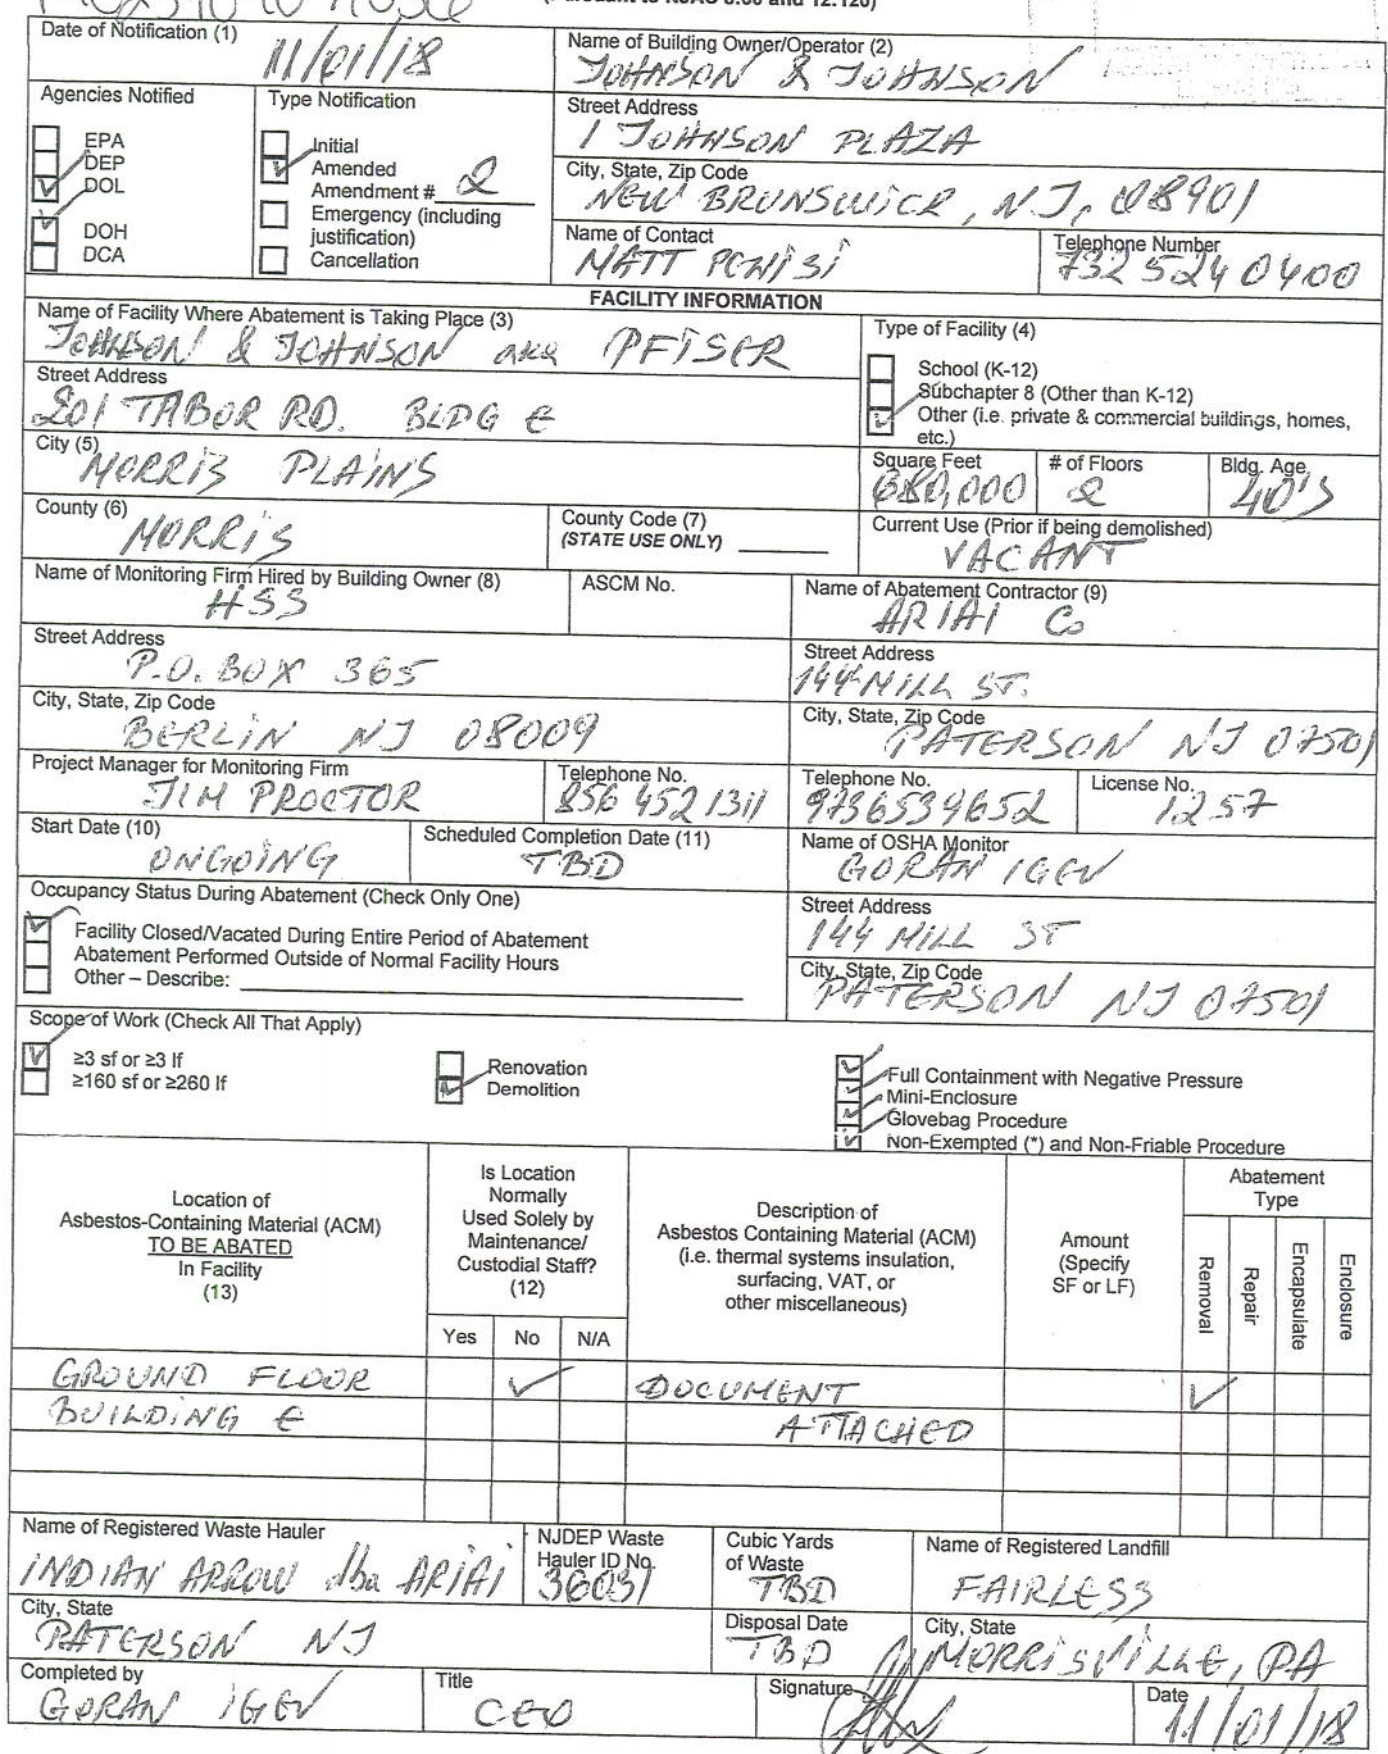 (Pursuant to NJAC 8:60 and 12:120)
Date of Notification (1)
11/01/18
Name of Building Owner/Operator (2)
JOHNSON & JOHNSON
Agencies Notified
EPA
DEP
DOL
DOH
DCA
Type Notification
Initial
Amended
Amendment # 2
Emergency (including
justification)
Cancellation
Street Address
1 JOHNSON PLAZA
City, State, Zip Code
NEW BRUNSWICK, NJ, 08901
Name of Contact
MATT
Telephone Number
732 524 0400
FACILITY INFORMATION
Name of Facility Where Abatement is Taking Place (3)
JOHNSON & JOHNSON aka PFISER
Type of Facility (4)
School (K-12)
Subchapter 8 (Other than K-12)
Other (i.e. private & commercial buildings, homes,
etc.)
Street Address
201 TABOR RD. BLDG E
City (5)
MORRIS PLAINS
Square Feet
680,000
# of Floors
2
Bldg. Age
40's
County (6)
MORRIS
County Code (7)
(STATE USE ONLY)
Current Use (Prior if being demolished)
VACANT
Name of Monitoring Firm Hired by Building Owner (8)
HSS
ASCM No.
Name of Abatement Contractor (9)
ARIAI Co
Street Address
P.O. BOX 365
Street Address
144 MILL ST.
City, State, Zip Code
BERLIN NJ 08009
City, State, Zip Code
PATERSON NJ 07501
Project Manager for Monitoring Firm
JIM PROCTOR
Telephone No.
856 452 1311
Telephone No.
9736539652
License No.
1257
Start Date (10)
ONGOING
Scheduled Completion Date (11)
TBD
Name of OSHA Monitor
GORAN IGEV
Occupancy Status During Abatement (Check Only One)
Facility Closed/Vacated During Entire Period of Abatement
Abatement Performed Outside of Normal Facility Hours
Other – Describe:
Street Address
144 MILL ST
City, State, Zip Code
PATERSON NJ 07501
Scope of Work (Check All That Apply)
≥3 sf or ≥3 lf
≥160 sf or ≥260 lf
Renovation
Demolition
Full Containment with Negative Pressure
Mini-Enclosure
Glovebag Procedure
Non-Exempted (*) and Non-Friable Procedure
Location of
Asbestos-Containing Material (ACM)
TO BE ABATED
In Facility
(13)
Is Location
Normally
Used Solely by
Maintenance/
Custodial Staff?
(12)
Yes No N/A
Description of
Asbestos Containing Material (ACM)
(i.e. thermal systems insulation,
surfacing, VAT, or
other miscellaneous)
Amount
(Specify
SF or LF)
Abatement
Type
Removal
Repair
Encapsulate
Enclosure
GROUND FLOOR
DOCUMENT
BUILDING E
ATTACHED
Name of Registered Waste Hauler
INDIAN ARROW dba ARIAI
NJDEP Waste
Hauler ID No.
36031
Cubic Yards
of Waste
TBD
Name of Registered Landfill
FAIRLESS
City, State
PATERSON NJ
Disposal Date
TBD
City, State
MORRISVILLE, PA
Completed by
GORAN IGEV
Title
CEO
Signature
Date
11/01/18